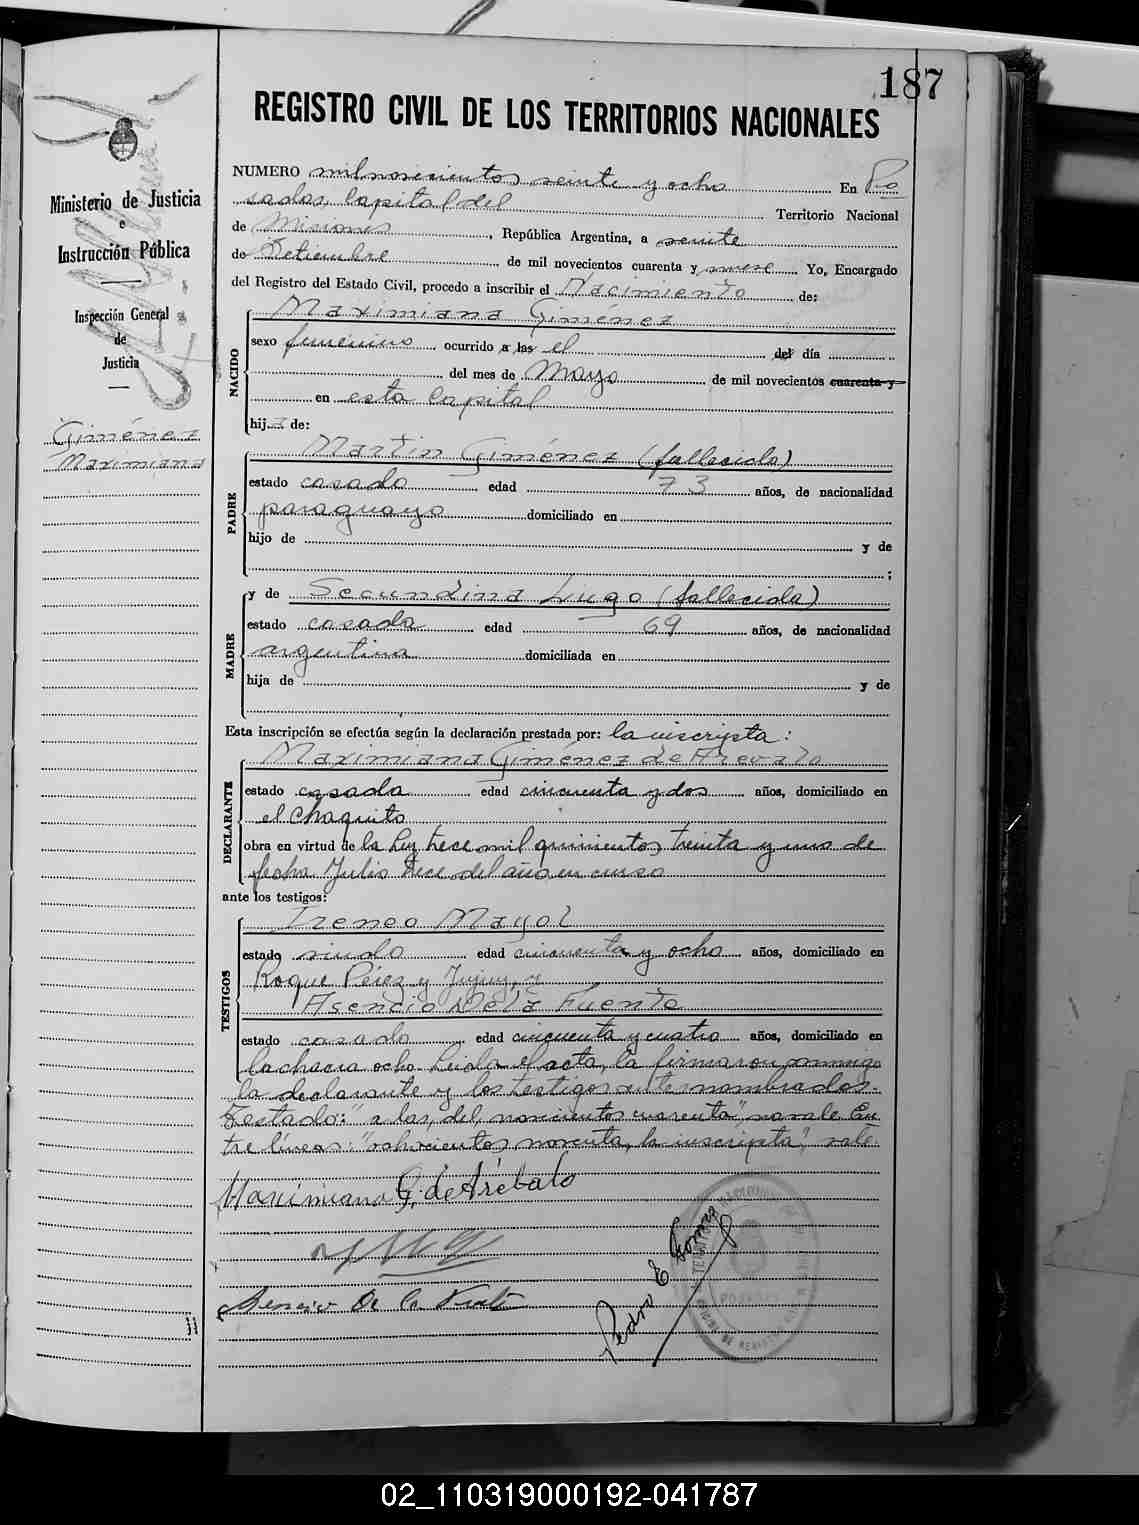 187
REGISTRO CIVIL DE LOS TERRITORIOS NACIONALES
Ministerio de Justicia
e
Instrucción Pública
Inspección General
de
Justicia
Giménez
Maximiana
NUMERO mil novecientos veinte y ocho En Po
sadas, Capital del Territorio Nacional
de Misiones, República Argentina, a veinte
de Setiembre de mil novecientos cuarenta y nueve Yo, Encargado
del Registro del Estado Civil, procedo a inscribir el Nacimiento de:
NACIDO
Maximiana Giménez
sexo femenino ocurrido a las el del día
del mes de Mayo de mil novecientos cuarenta y
en esta Capital
hija de:
PADRE
Martin Giménez (fallecido)
estado casado edad 73 años, de nacionalidad
paraguayo domiciliado en
hijo de y de
;
MADRE
y de Secundina Lugo (fallecida)
estado casada edad 69 años, de nacionalidad
argentina domiciliada en
hija de y de
Esta inscripción se efectúa según la declaración prestada por: la inscripta:
DECLARANTE
Maximiana Giménez de Arevalo
estado casada edad cincuenta y dos años, domiciliado en
el Chaquito
obra en virtud de la Ley trece mil quinientos treinta y uno de
fecha Julio trece del año en curso
ante los testigos:
TESTIGOS
Ireneo Mayol
estado viudo edad cincuenta y ocho años, domiciliado en
Roque Pérez y Jujuy, y
Asencio De la Fuente
estado casado edad cincuenta y cuatro años, domiciliado en
la chacra ocho. Leida el acta, la firmaron conmigo
la declarante y los testigos antes nombrados.
Testado: "a las, del, novecientos cuarenta", no vale. En
tre líneas: "ochocientos noventa, la inscripta", vale.
Maximiana G. de Arébalo
Asencio De la Fuente
Pedro E Gomez
POSADAS
02_110319000192-041787